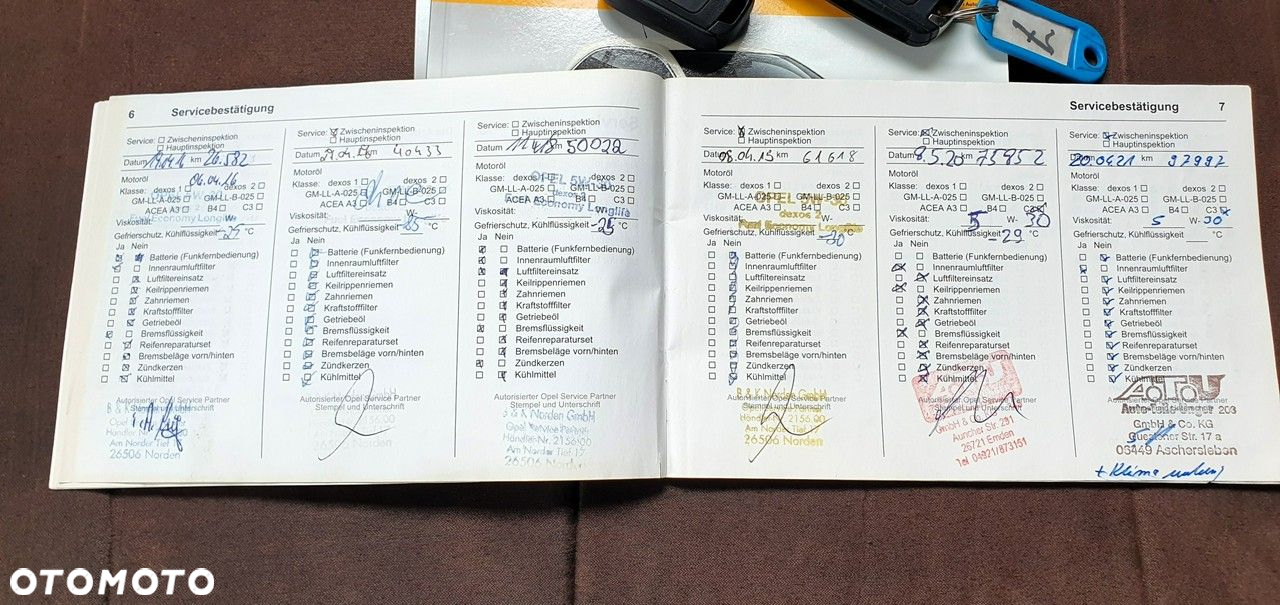 6 Servicebestätigung
Service: Zwischeninspektion
Hauptinspektion
Datum km 26.582
Motoröl 06.04.16
Klasse: dexos 1 dexos 2
GM-LL-A-025 GM-LL-B-025
ACEA A3 B4 C3
Economy Longlife
Viskosität: W-
Gefrierschutz, Kühlflüssigkeit -25 °C
Ja Nein
Batterie (Funkfernbedienung)
Innenraumluftfilter
Luftfiltereinsatz
Keilrippenriemen
Zahnriemen
Kraftstofffilter
Getriebeöl
Bremsflüssigkeit
Reifenreparaturset
Bremsbeläge vorn/hinten
Zündkerzen
Kühlmittel
Autorisierter Opel Service Partner
Stempel und Unterschrift
B & K Norden GmbH
Opel Service
Händler Nr. 2156
Am Norder Tief
26506 Norden
Service: Zwischeninspektion
Hauptinspektion
Datum km 40433
Motoröl
Klasse: dexos 1 dexos 2
GM-LL-A-025 GM-LL-B-025
ACEA A3 B4 C3
Viskosität: W-
Gefrierschutz, Kühlflüssigkeit °C
Ja Nein
Batterie (Funkfernbedienung)
Innenraumluftfilter
Luftfiltereinsatz
Keilrippenriemen
Zahnriemen
Kraftstofffilter
Getriebeöl
Bremsflüssigkeit
Reifenreparaturset
Bremsbeläge vorn/hinten
Zündkerzen
Kühlmittel
Autorisierter Opel Service Partner
Stempel und Unterschrift
Service: Zwischeninspektion
Hauptinspektion
Datum km 50022
Motoröl
Klasse: dexos 1 dexos 2
GM-LL-A-025 GM-LL-B-025
ACEA A3 B4 C3
Economy Longlife
Viskosität: W-
Gefrierschutz, Kühlflüssigkeit -25 °C
Ja Nein
Batterie (Funkfernbedienung)
Innenraumluftfilter
Luftfiltereinsatz
Keilrippenriemen
Zahnriemen
Kraftstofffilter
Getriebeöl
Bremsflüssigkeit
Reifenreparaturset
Bremsbeläge vorn/hinten
Zündkerzen
Kühlmittel
Autorisierter Opel Service Partner
Stempel und Unterschrift
B & K Norden GmbH
Opel Service Partner
Händler-Nr. 2156:00
Am Norder Tief 17
26506 Norden
Servicebestätigung 7
Service: Zwischeninspektion
Hauptinspektion
Datum 08.04.19 km 61618
Motoröl
Klasse: dexos 1 dexos 2
GM-LL-A-025 GM-LL-B-025
dexos 2
Fuel Economy Longlife
Viskosität: W-
Gefrierschutz, Kühlflüssigkeit -30 °C
Ja Nein
Batterie (Funkfernbedienung)
Innenraumluftfilter
Luftfiltereinsatz
Keilrippenriemen
Zahnriemen
Kraftstofffilter
Getriebeöl
Bremsflüssigkeit
Reifenreparaturset
Bremsbeläge vorn/hinten
Zündkerzen
Kühlmittel
Autorisierter Opel Service Partner
Stempel und Unterschrift
B & K Norden GmbH
26506 Norden
Service: Zwischeninspektion
Hauptinspektion
Datum 8.5.20 km 75952
Motoröl
Klasse: dexos 1 dexos 2
GM-LL-A-025 GM-LL-B-025
ACEA A3 B4 C3
Viskosität: 5 W- 30
Gefrierschutz, Kühlflüssigkeit -29 °C
Ja Nein
Batterie (Funkfernbedienung)
Innenraumluftfilter
Luftfiltereinsatz
Keilrippenriemen
Zahnriemen
Kraftstofffilter
Getriebeöl
Bremsflüssigkeit
Reifenreparaturset
Bremsbeläge vorn/hinten
Zündkerzen
Kühlmittel
Autorisierter Opel Service Partner
Stempel und Unterschrift
GmbH &
Auricher Str. 291
26721 Emden
Tel 04921/873151
Service: Zwischeninspektion
Hauptinspektion
Datum 20.04.21 km 97997
Motoröl
Klasse: dexos 1 dexos 2
GM-LL-A-025 GM-LL-B-025
ACEA A3 B4 C3
Viskosität: 5 W- 30
Gefrierschutz, Kühlflüssigkeit °C
Ja Nein
Batterie (Funkfernbedienung)
Innenraumluftfilter
Luftfiltereinsatz
Keilrippenriemen
Zahnriemen
Kraftstofffilter
Getriebeöl
Bremsflüssigkeit
Reifenreparaturset
Bremsbeläge vorn/hinten
Zündkerzen
Kühlmittel
Autorisierter Opel Service Partner
Auto-Teile-Unger 203
GmbH & Co. KG
Str. 17 a
06449 Aschersleben
+ Klima
OTOMOTO